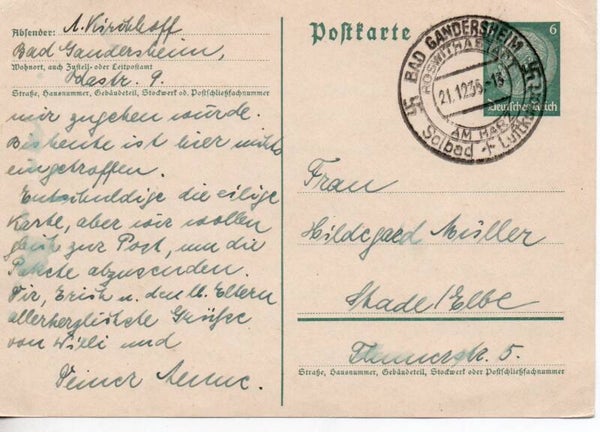 Absender: A. Kirchhoff
Bad Gandersheim,
Wohnort, auch Zustell- oder Leitpostamt
str. 9.
Straße, Hausnummer, Gebäudeteil, Stockwerk od. Postschließfachnummer
mir zugehen würde.
Bis heute ist hier nichts
eingetroffen.
Entschuldige die eilige
Karte, aber wir wollen
gleich zur Post, um die
Pakete abzusenden.
Dir, Erich u. den lb. Eltern
allerherzlichste Grüße
von Willi und
Deiner
Postkarte
6
Deutsches Reich
BAD GANDERSHEIM
ROSWITHASTADT
21.12.36.-13
AM HARZ
Solbad + Luftk
Frau
Hildegard Müller
Stade/Elbe
str. 5.
Straße, Hausnummer, Gebäudeteil, Stockwerk oder Postschließfachnummer